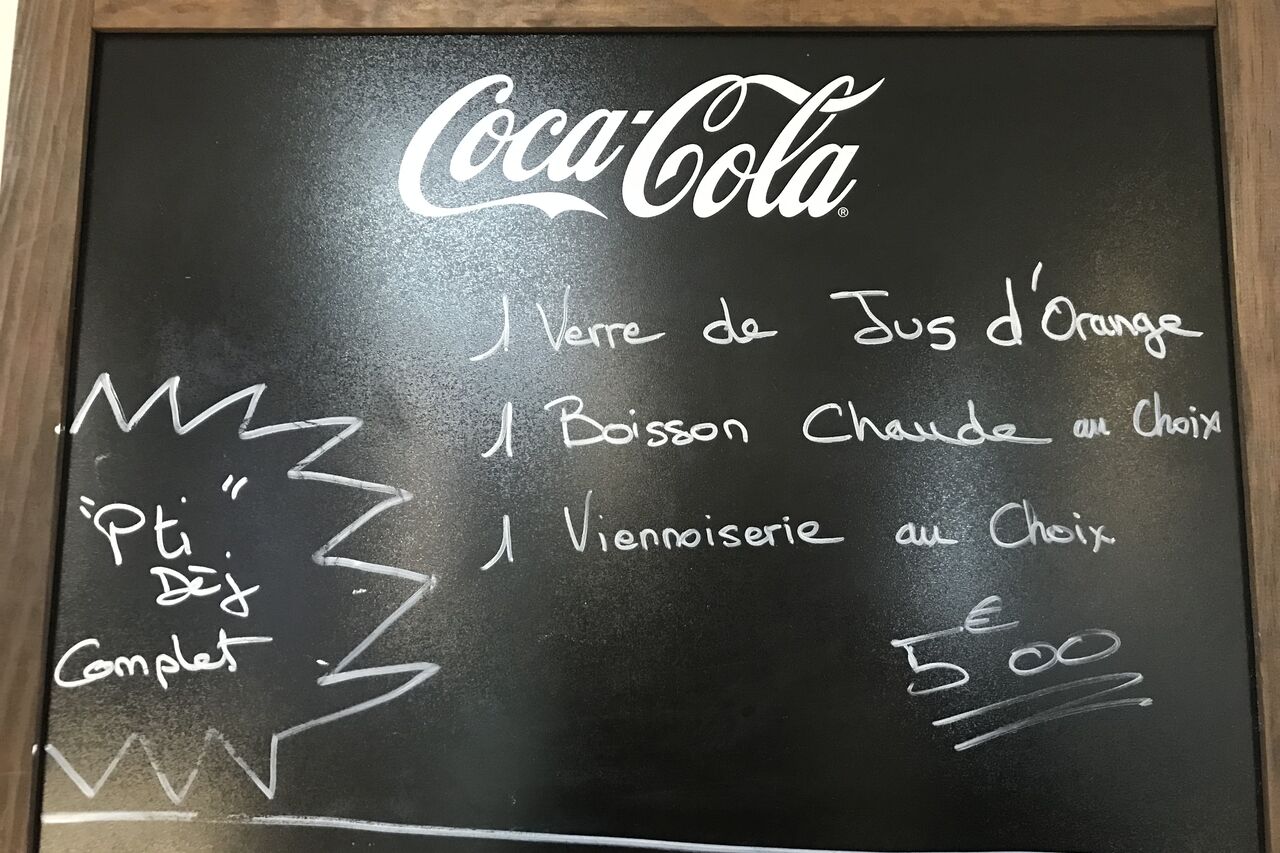 Coca-Cola®
1 Verre de Jus d'Orange
1 Boisson Chaude au Choix
1 Viennoiserie au Choix
5€00
"Pti"
Déj
Complet